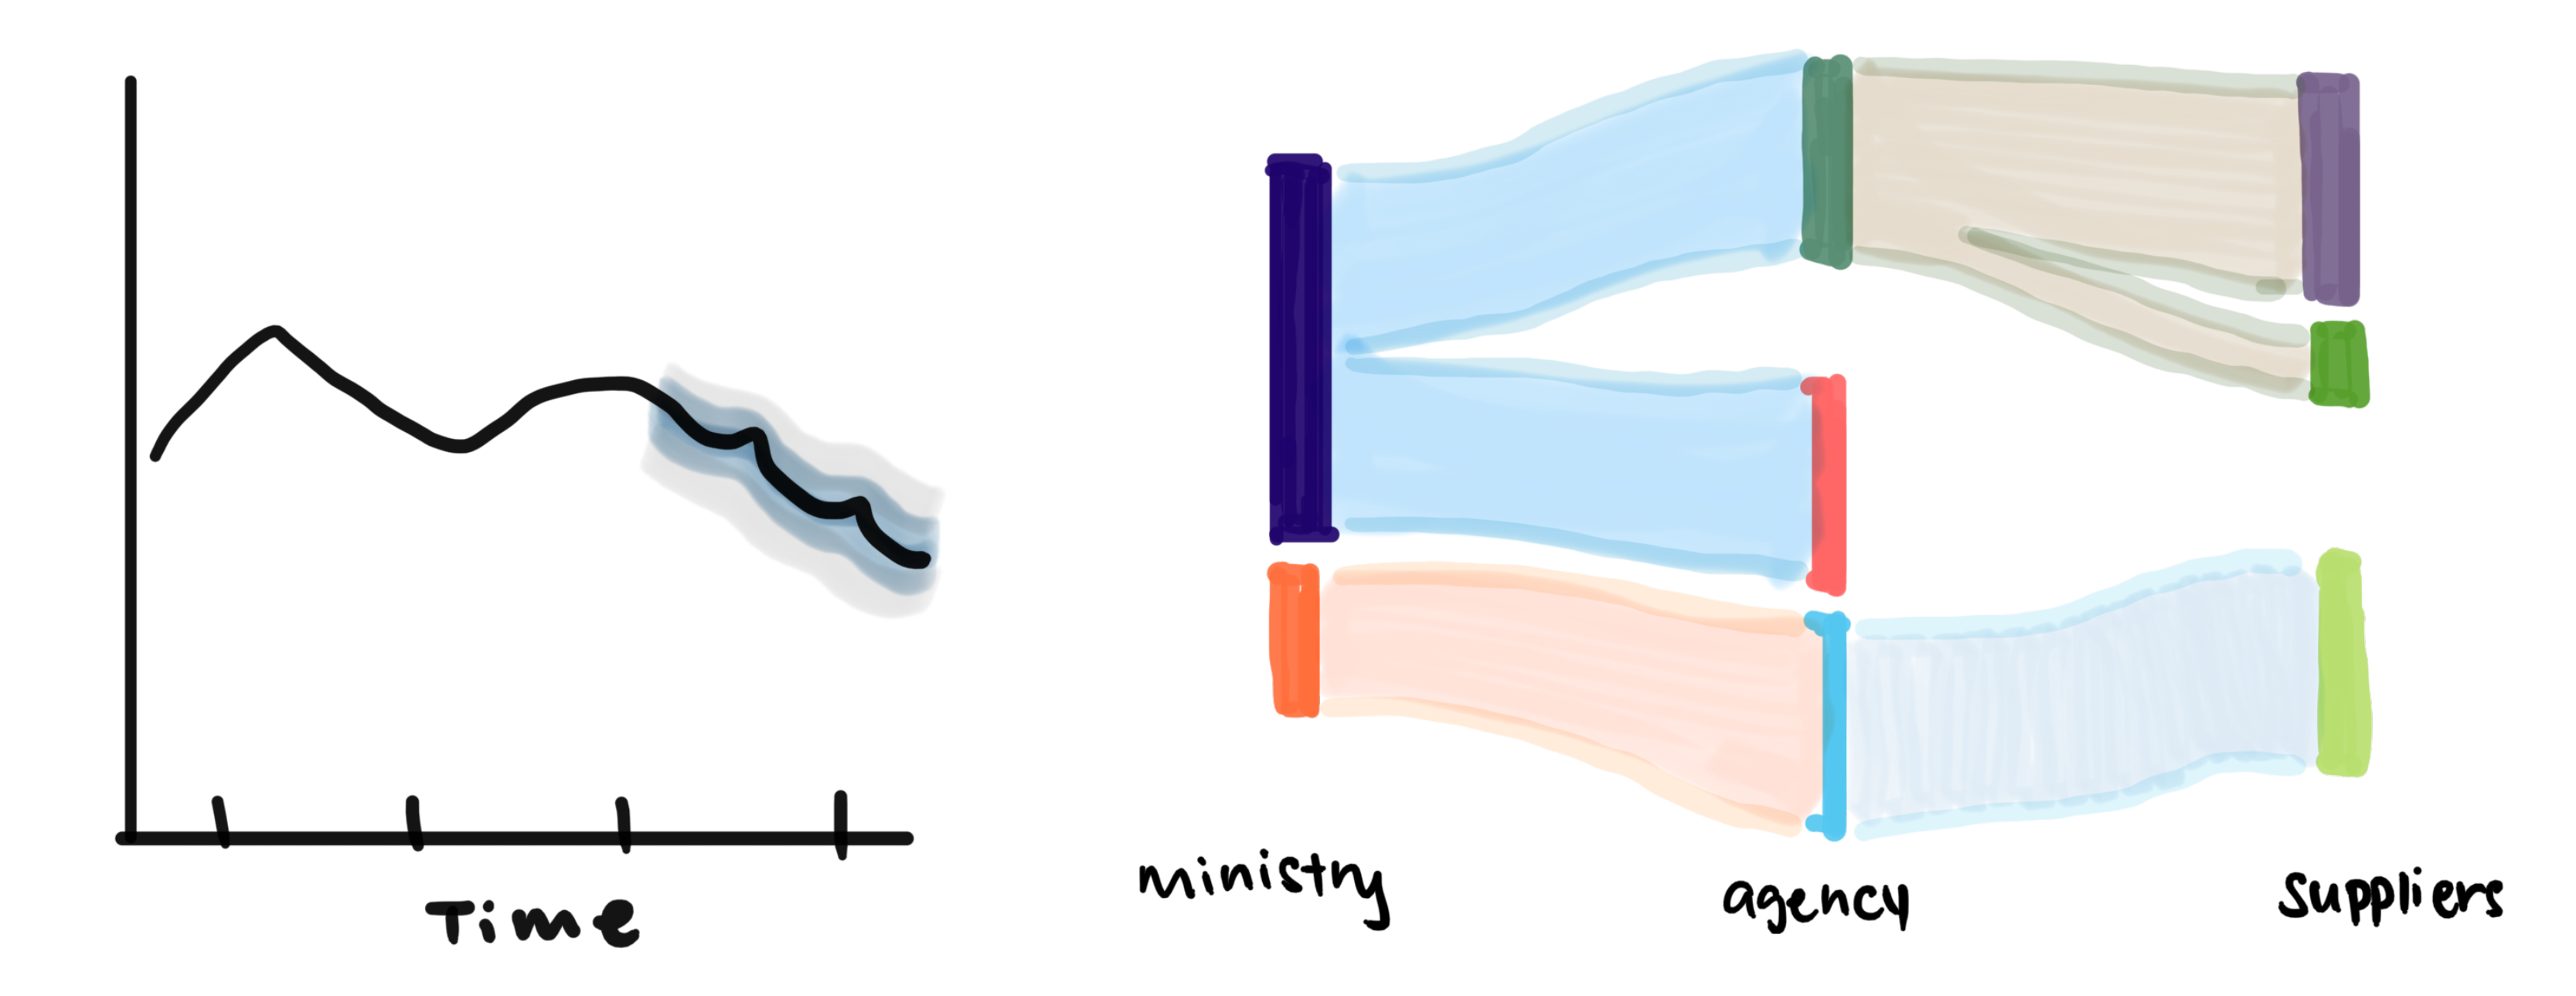 Time
ministry
agency
suppliers